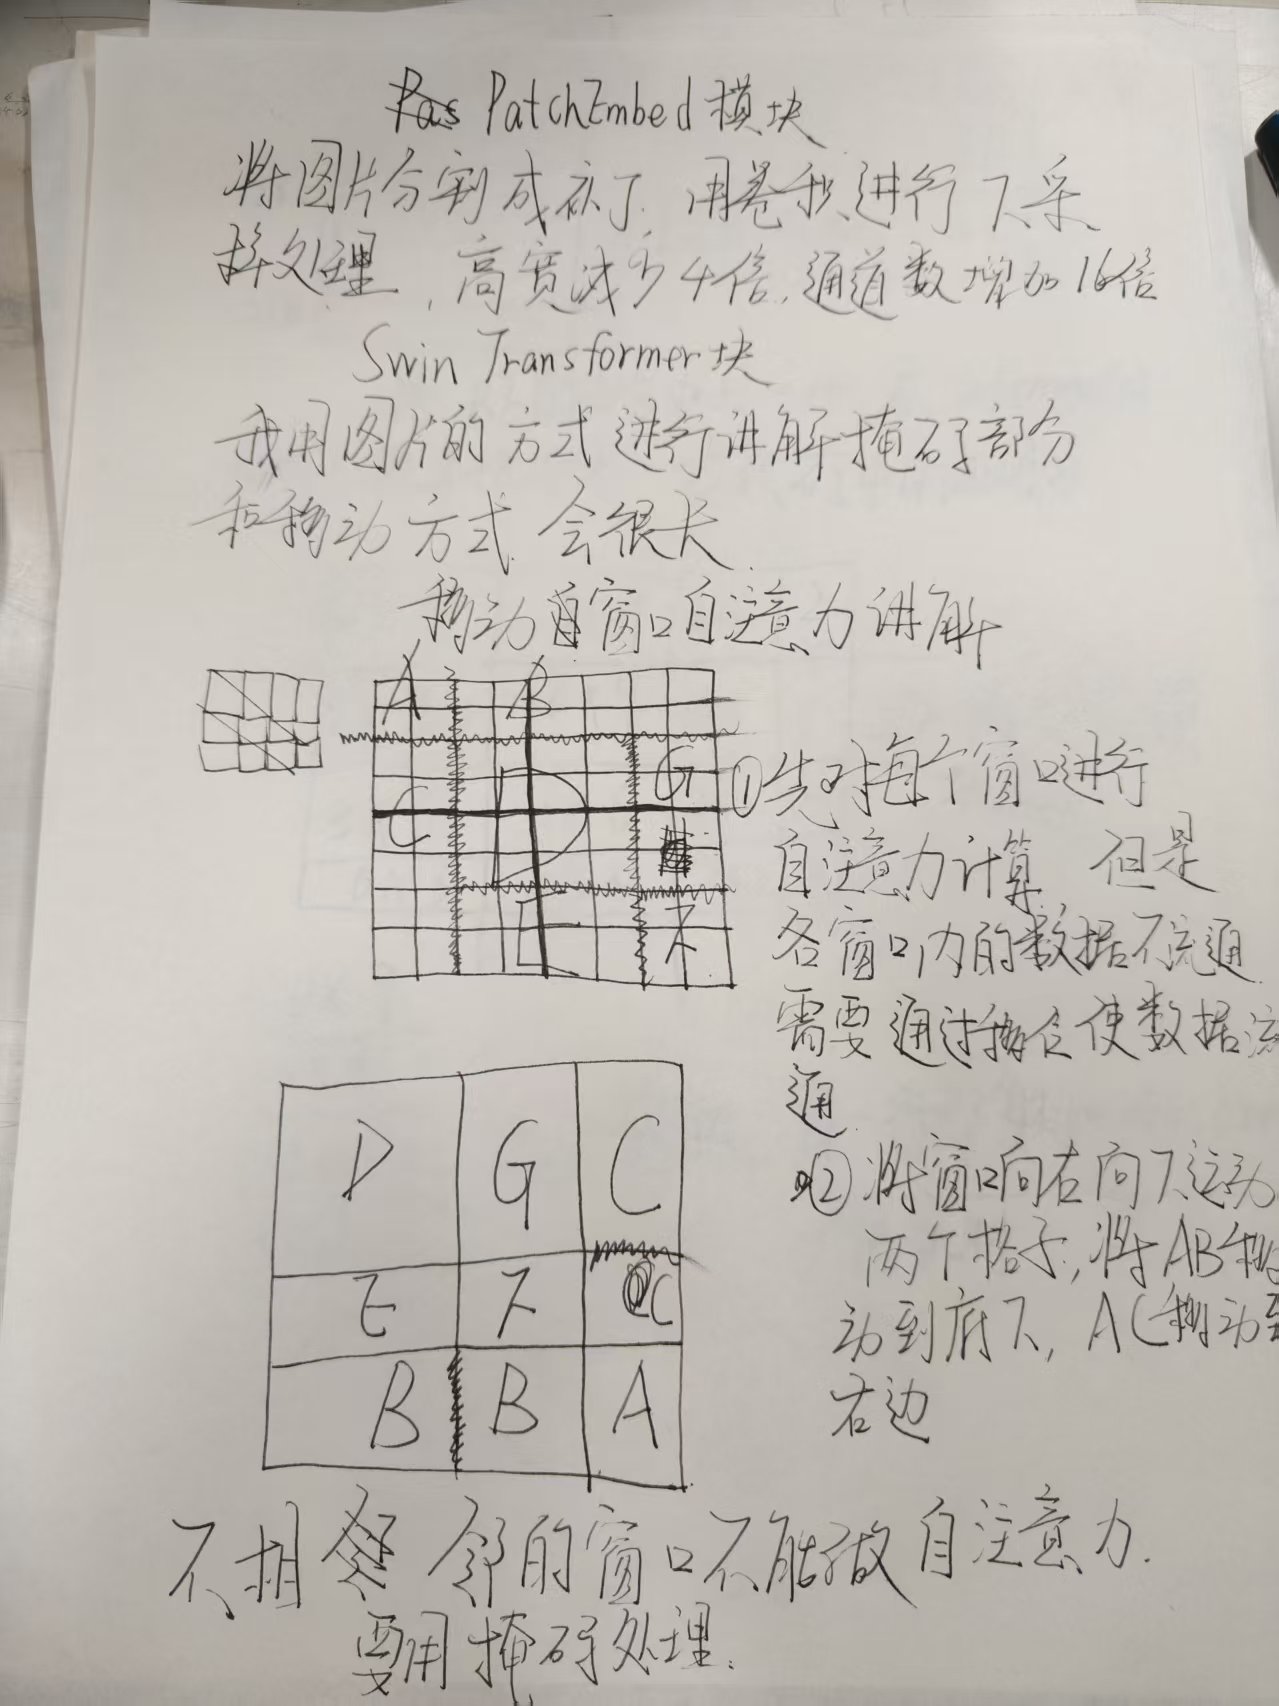 PatchEmbed模块
将图片分割成补丁.用卷积进行下采
样处理,高宽减少4倍,通道数增加16倍
Swin Transformer块
我用图片的方式进行讲解掩码部分
和移动方式.会很长.
移动窗口自注意力讲解
A B
G
C D
E F
①先对每个窗口进行
自注意力计算.但是
各窗口内的数据不流通.
需要通过移位使数据流
通.
②将窗口向右向下运动
两个格子,将AB移
动到底下,AC移动到
右边
D G C
E F C
B B A
不相邻的窗口不能做自注意力.
要用掩码处理.